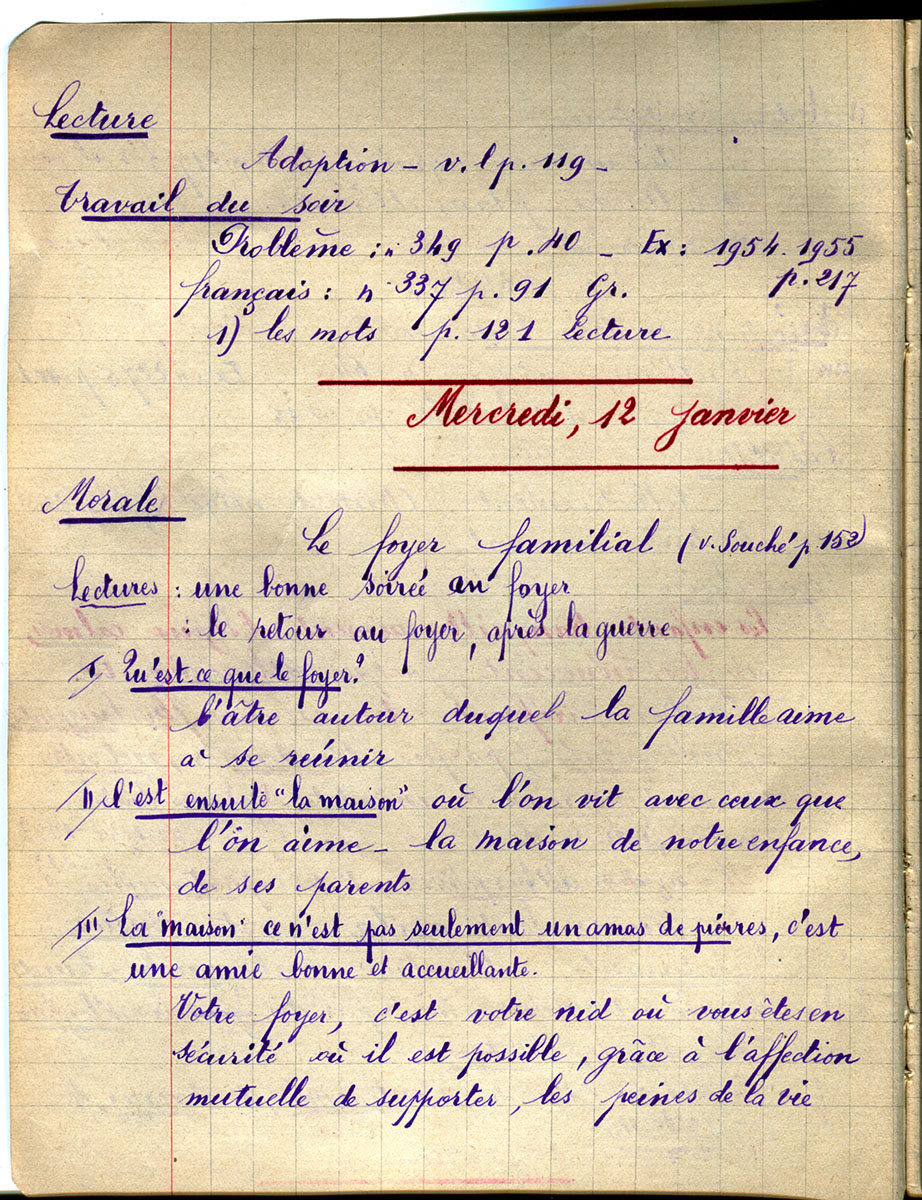 Lecture
Adoption – v. l p. 119 –
Travail du soir
Problème : n° 349 p. 40 – Ex : 1954. 1955
p. 217
français : n° 337 p. 91 Gr.
1) les mots p. 121 lecture
Mercredi, 12 Janvier
Morale
Le foyer familial (v. Souché p 152)
Lectures : une bonne soirée au foyer
: le retour au foyer, après la guerre
I Qu'est-ce que le foyer?
L'âtre autour duquel la famille aime
à se reúnir
II C'est ensuite "la maison" où l'on vit avec ceux que
l'on aime – la maison de notre enfance,
de ses parents
III La "maison" ce n'est pas seulement un amas de pierres, c'est
une amie bonne et accueillante.
Votre foyer, c'est votre nid où vous êtes en
sécurité où il est possible, grâce à l'affection
mutuelle de supporter, les peines de la vie